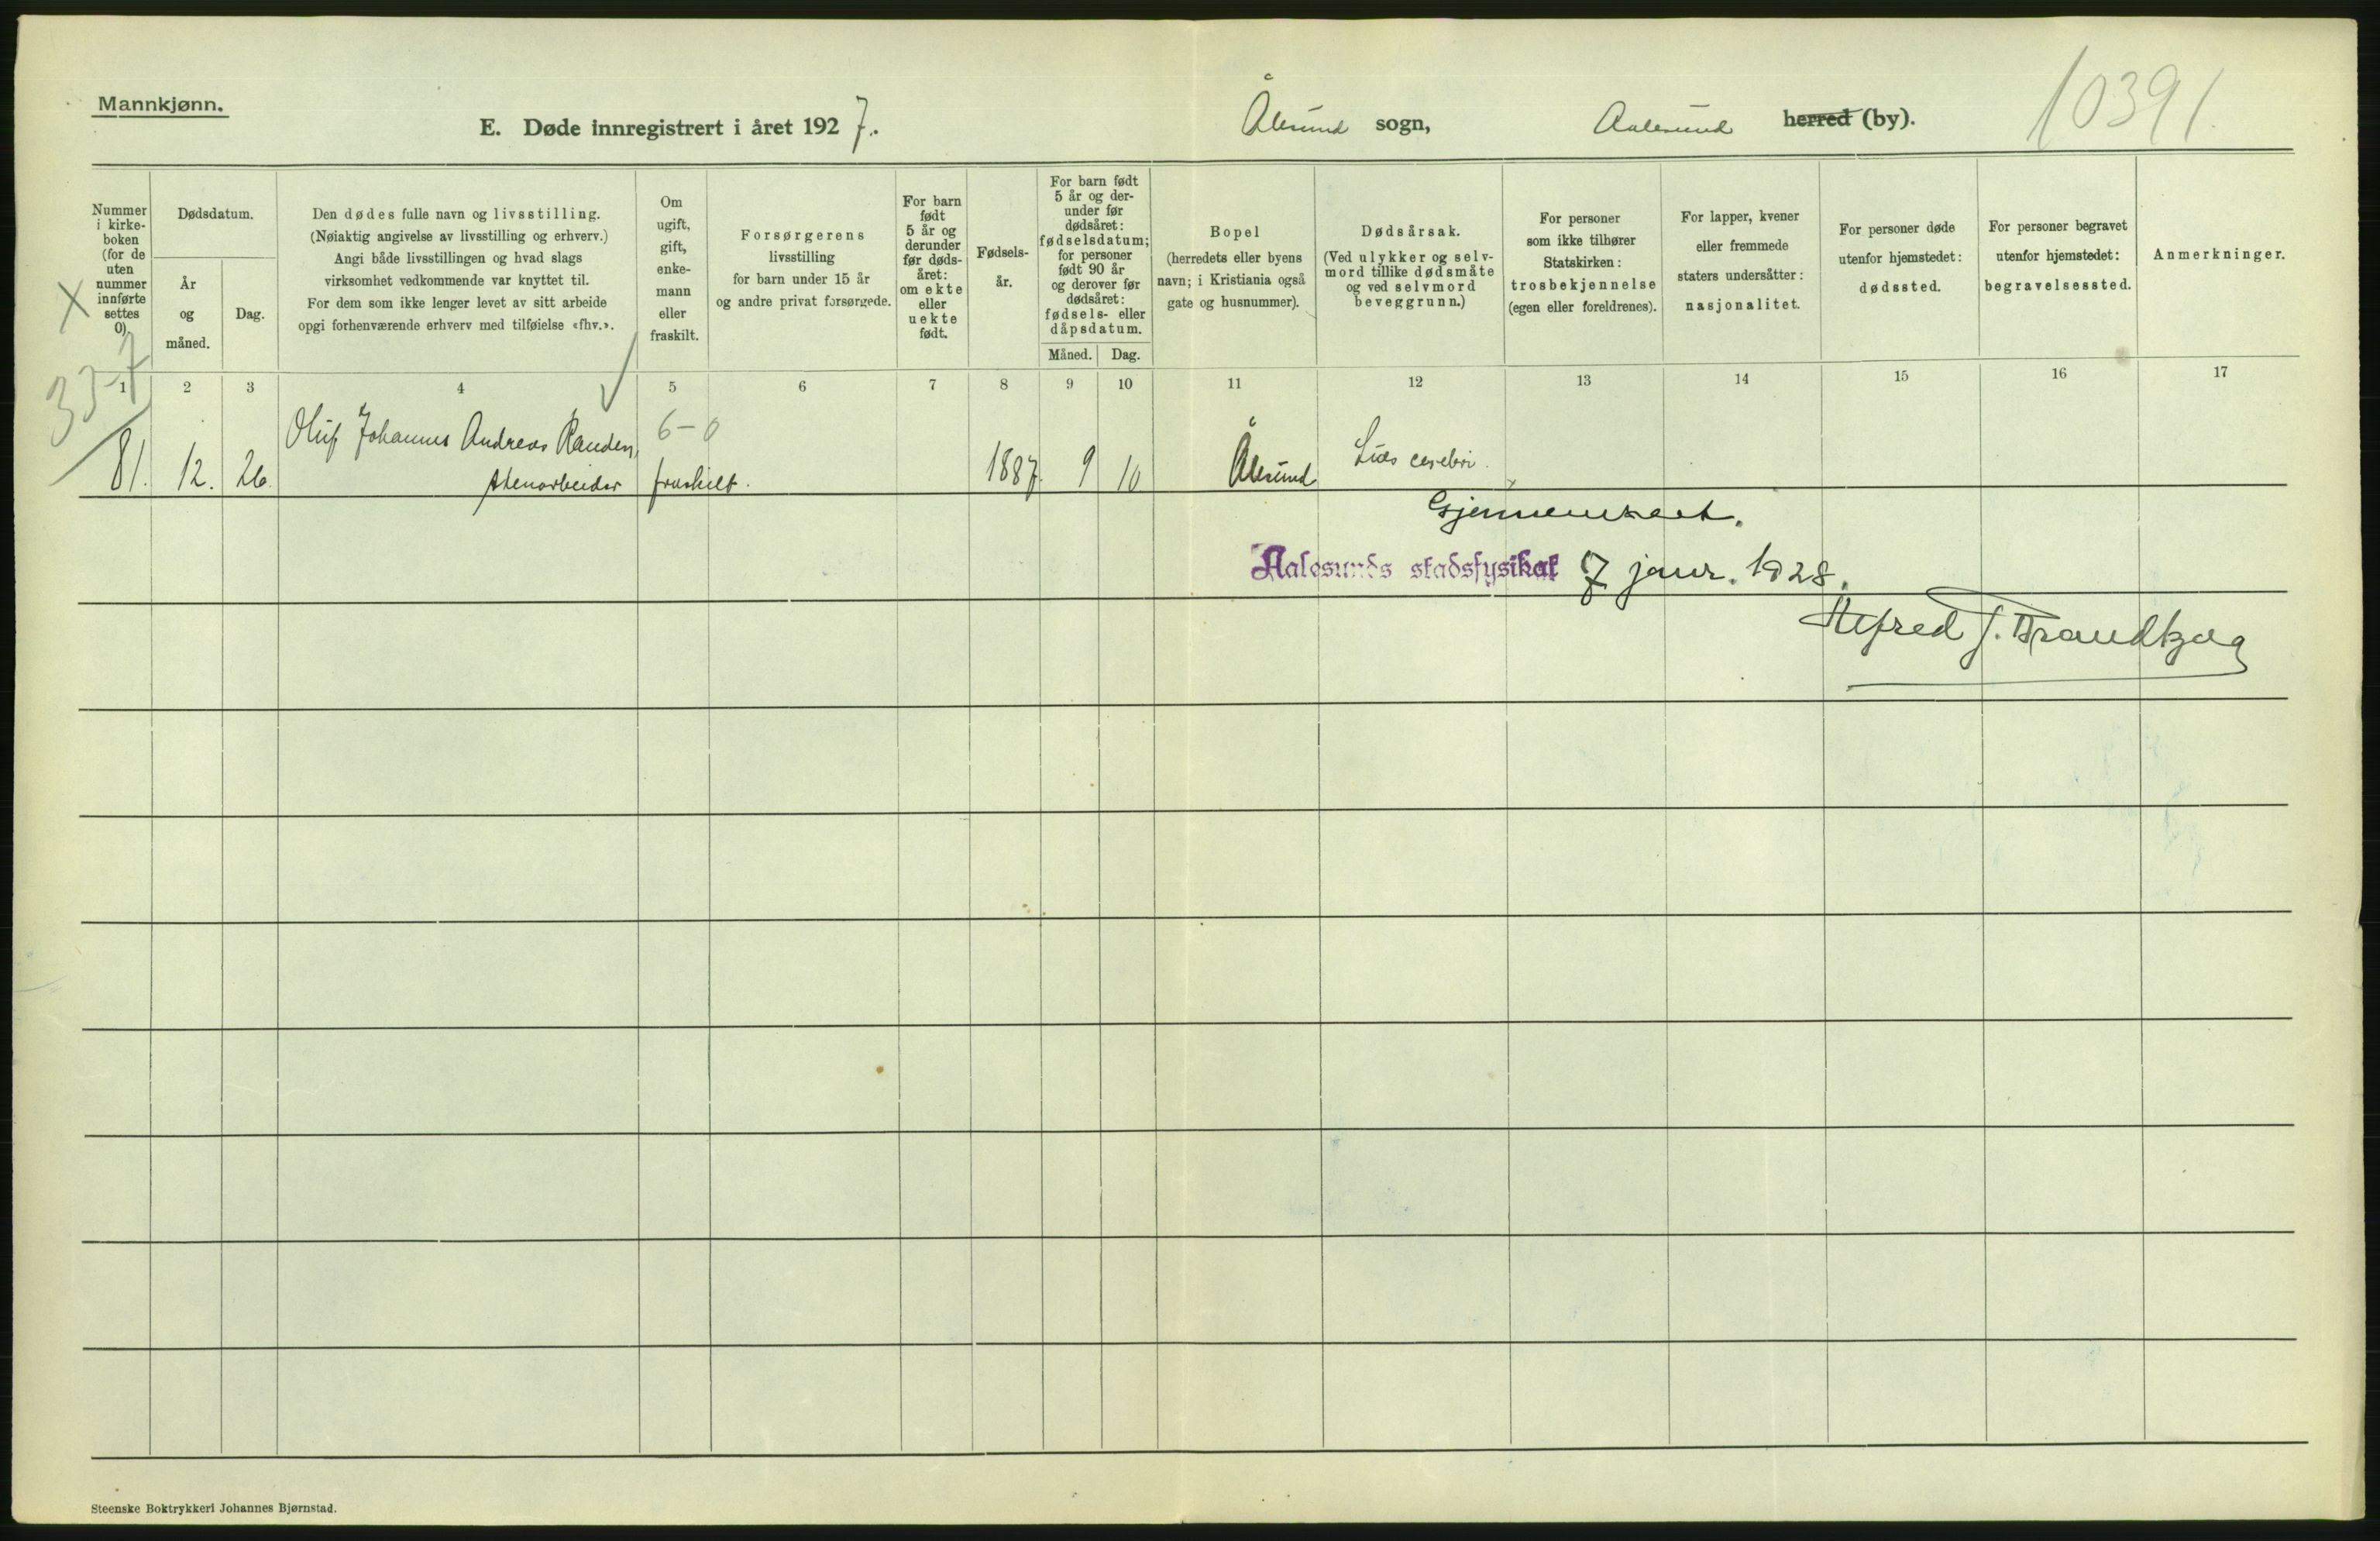 Mannkjønn.
E. Døde innregistrert i året 1927.
Ålesund sogn,
Aalesund herred (by).
10391.
Nummer
i kirke-
boken
(for de
uten
nummer
innførte
settes
0).
Dødsdatum.
År
og
måned.
Dag.
Den dødes fulle navn og livsstilling.
(Nøiaktig angivelse av livsstilling og erhverv.)
Angi både livsstillingen og hvad slags
virksomhet vedkommende var knyttet til.
For dem som ikke lenger levet av sitt arbeide
opgi forhenværende erhverv med tilføielse «fhv.».
Om
ugift,
gift,
enke-
mann
eller
fraskilt.
Forsørgerens
livsstilling
for barn under 15 år
og andre privat forsørgede.
For barn
født
5 år og
derunder
før døds-
året:
om ekte
eller
uekte
født.
Fødsels-
år.
For barn født
5 år og der-
under før
dødsåret:
fødselsdatum;
for personer
født 90 år
og derover før
dødsåret:
fødsels- eller
dåpsdatum.
Måned.
Dag.
Bopel
(herredets eller byens
navn; i Kristiania også
gate og husnummer).
Dødsårsak.
(Ved ulykker og selv-
mord tillike dødsmåte
og ved selvmord
beveggrunn.)
For personer
som ikke tilhører
Statskirken:
trosbekjennelse
(egen eller foreldrenes).
For lapper, kvener
eller fremmede
staters undersåtter:
nasjonalitet.
For personer døde
utenfor hjemstedet:
dødssted.
For personer begravet
utenfor hjemstedet:
begravelsessted.
Anmerkninger.
X
33-7
1 2 3 4 5 6 7 8 9 10 11 12 13 14 15 16 17
Oluf Johannes Andreas Randen, 6-0
81. 12. 26. stenarbeider fraskilt. 1887. 9 10 Ålesund Lues cerebri.
Gjennemseet.
Aalesunds stadsfysikat 7 janr. 1928.
Alfred J. Brandtzæg
Steenske Boktrykkeri Johannes Bjørnstad.